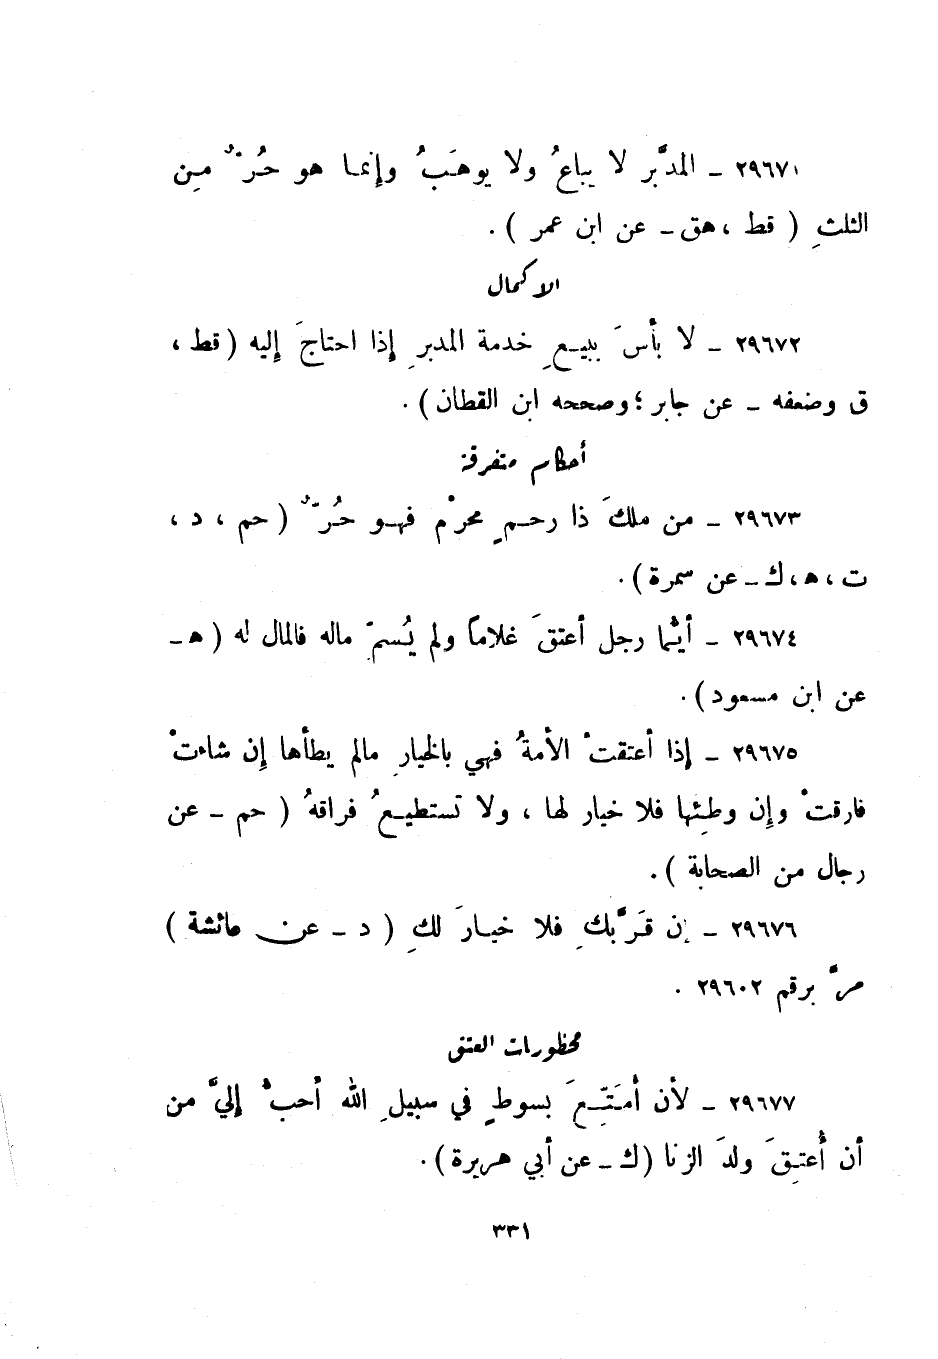 ٢٩٦٧١ ـ المدبَّر لا يباعُ ولا يوهَبُ وإنما هو حُرٌّ من
الثلثِ ( قط ، هق ـ عن ابن عمر ) .
الاكمال
٢٩٦٧٢ ـ لا بأسَ ببيعِ خدمة المدبرِ إذا احتاجَ إليه ( قط ،
ق وضعفه ـ عن جابر ؛ وصححه ابن القطان ) .
أحكام متفرقة
٢٩٦٧٣ ـ من ملكَ ذا رحمٍ محرْم فهو حُرٌّ ( حم ، د ،
ت ، ه ، ك ـ عن سمرة ) .
٢٩٦٧٤ ـ أيُّما رجل أعتقَ غلاماً ولم يُسمِّ ماله فالمال له ( ه ـ
عن ابن مسعود ) .
٢٩٦٧٥ ـ إذا أعتقتْ الأمةُ فهي بالخيارِ مالم يطأها إن شاءتْ
فارقتْ وإن وطِئها فلا خيار لها ، ولا تستطيعُ فراقهُ ( حم ـ عن
رجال من الصحابة ) .
٢٩٦٧٦ ـ إن قَرَّبكِ فلا خيارَ لكِ ( د ـ عن عائشة )
مرَّ برقم ٢٩٦٠٢ .
محظورات العتق
٢٩٦٧٧ ـ لأن أُمَتِّعَ بسوطٍ في سبيلِ الله أحبُّ إليَّ من
أن أُعتِقَ ولدَ الزنا ( ك ـ عن أبي هريرة ) .
٣٣١